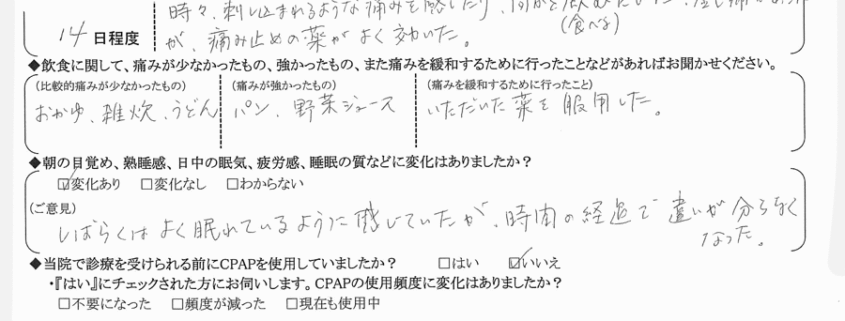 時々、刺し込まれるような痛みを感じたり、何かを飲む
(食べる)
14日程度
が、痛み止めの薬がよく効いた。
◆飲食に関して、痛みが少なかったもの、強かったもの、また痛みを緩和するために行ったことなどがあればお聞かせください。
(比較的痛みが少なかったもの) (痛みが強かったもの) (痛みを緩和するために行ったこと)
おかゆ、雑炊、うどん パン、野菜ジュース いただいた薬を服用した。
◆朝の目覚め、熟睡感、日中の眠気、疲労感、睡眠の質などに変化はありましたか?
☑変化あり □変化なし □わからない
(ご意見)
しばらくはよく眠れているように感じていたが、時間の経過で違いが分らなく
なった。
◆当院で診療を受けられる前にCPAPを使用していましたか? □はい ☑いいえ
・『はい』にチェックされた方にお伺いします。CPAPの使用頻度に変化はありましたか?
□不要になった □頻度が減った □現在も使用中